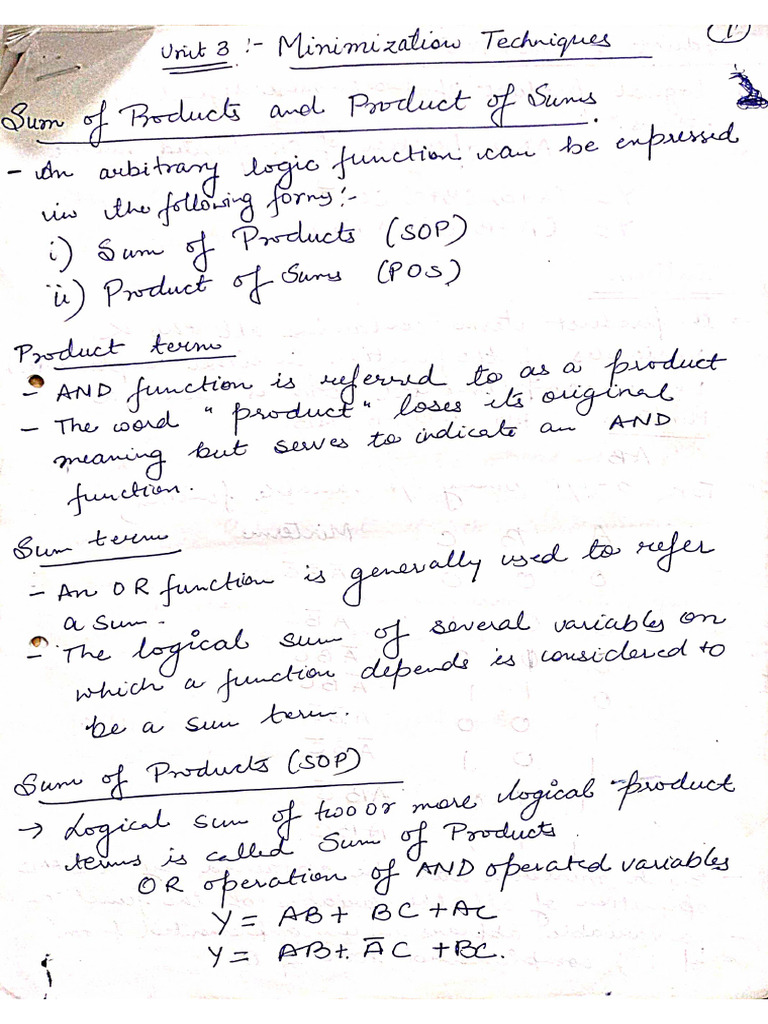 1
Unit 3 :- Minimization Techniques
Sum of Products and Product of Sums.
- An arbitrary logic function can be expressed
in the following forms:-
i) Sum of Products (SOP)
ii) Product of Sums (POS)
Product term
- AND function is referred to as a product
- The word "product" loses its original
meaning but serves to indicate an AND
function.
Sum term
- An OR function is generally used to refer
a sum.
- The logical sum of several variables on
which a function depends is considered to
be a sum term.
Sum of Products (SOP)
→ Logical sum of two or more logical product
terms is called Sum of Products.
OR operation of AND operated variables
Y = AB + BC + AC
Y = AB + A̅C + BC.